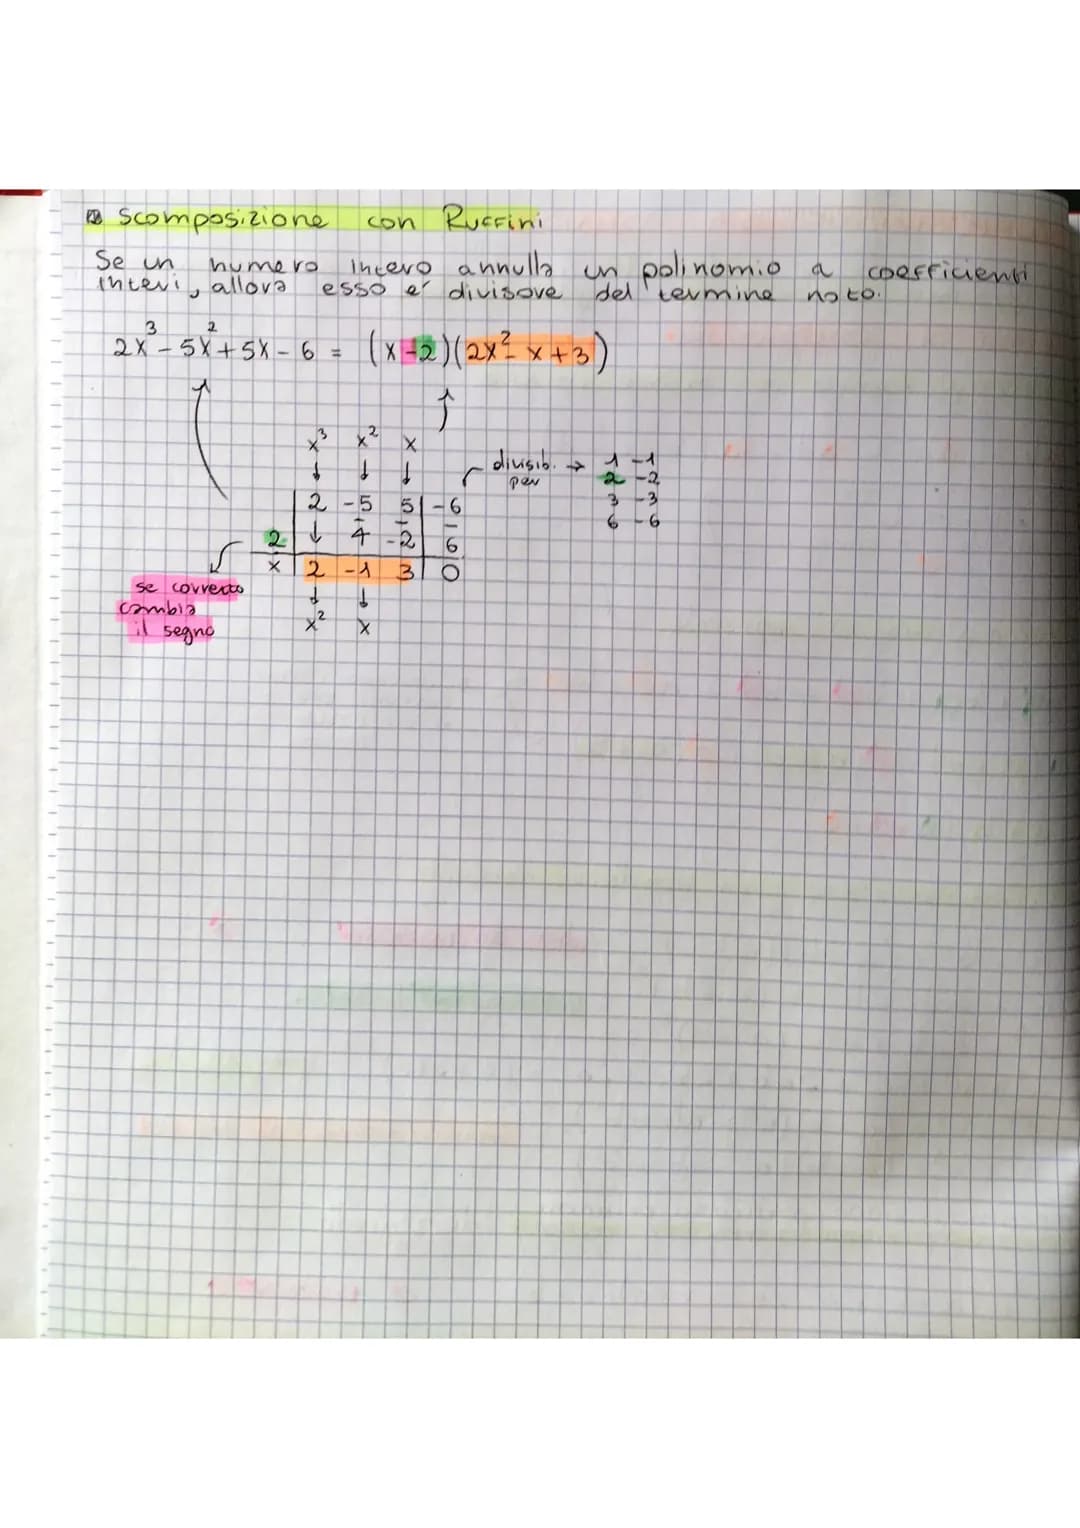 Scomposizione con Ruffini
Se un numero intero annulla un polinomio a coefficienti
interi, allora esso e' divisore del termine noto.
2x³ - 5x² + 5x - 6 = (x-2)(2x² - x + 3)
x³ x² x
↓ ↓ ↓
divisib. → 1 -1
per 2 -2
3 -3
6 -6
2 -5 5 -6
2 ↓ 4 -2 6
x 2 -1 3 0
↓ ↓
x² x
se corretto
cambia
il segno